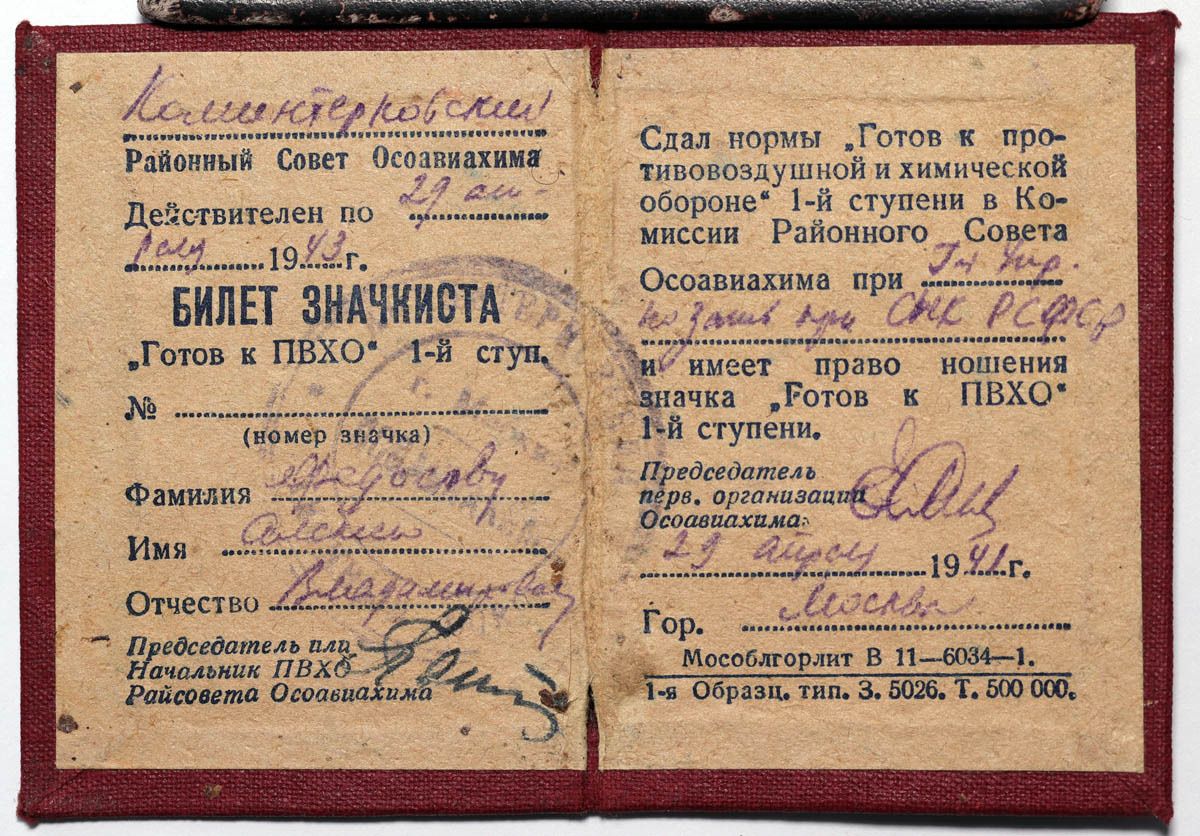 Коминтерновский
Районный Совет Осоавиахима
Действителен по 29 ап-
реля 1943 г.
БИЛЕТ ЗНАЧКИСТА
„Готов к ПВХО“ 1-й ступ.
№
(номер значка)
Фамилия
Имя
Отчество Владимировну
Председатель или
Начальник ПВХО
Райсовета Осоавиахима
Сдал нормы „Готов к про-
тивовоздушной и химической
обороне“ 1-й ступени в Ко-
миссии Районного Совета
Осоавиахима при Гл. Упр.
по при СНК РСФСР
и имеет право ношения
значка „Готов к ПВХО“
1-й ступени.
Председатель
перв. организации
Осоавиахима
29 апреля 1941 г.
Гор. Москва
Мособлгорлит В 11—6034—1.
1-я Образц. тип. З. 5026. Т. 500 000.